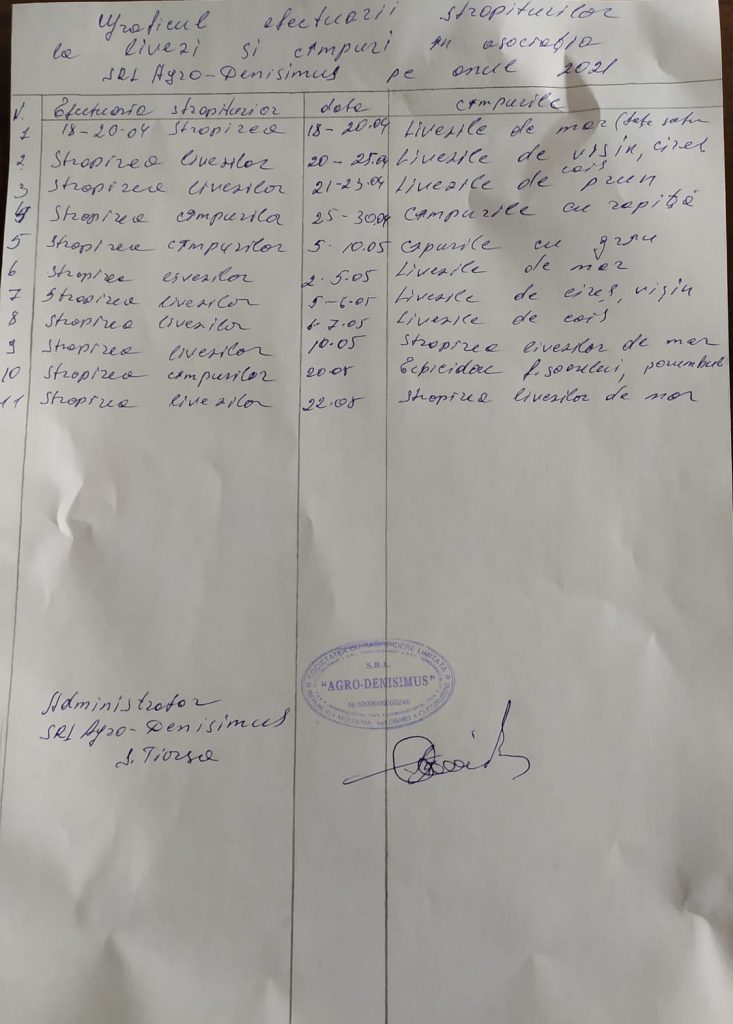 Graficul efectuarii stropiturilor
la livezi și cîmpuri în asociația
SRL Agro-Denisimus pe anul 2021
N. Efectuaria stropiturior data cîmpurile
1 18-20.04 Stropirea 18-20.04 Livezile de mar (
2 Stropirea livezilor 20-25.04 Livezile de vișin, cireș
cais
3 Stropirea livezilor 21-23.04 Livezile de prun
4 Stropirea cîmpurilor 25-30.04 Cîmpurile cu rapiță
5 Stropirea cîmpurilor 5-10.05 Cîpurile cu grîu
6 Stropirea livezilor 2-5.05 Livezile de mar
7 Stropirea livezilor 5-6.05 Livezile de cireș, vișin
8 Stropirea livezilor 6-7.05 Livezile de cais
9 Stropirea livezilor 10.05 Stropirea livezilor de mar
10 Stropirea cîmpurilor 20.05 porumbul
11 Stropirea livezilor 22.05 Stropirea livezilor de mar
SOCIETATEA CU RASPUNDERE LIMITATA
S.R.L.
"AGRO-DENISIMUS"
REPUBLICA MOLDOVA
Administrator
SRL Agro-Denisimus